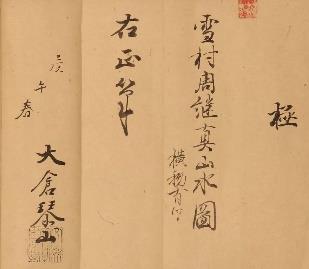 極
雪村周継真山水圖
横物有印
右正筆
午春
大倉琴山